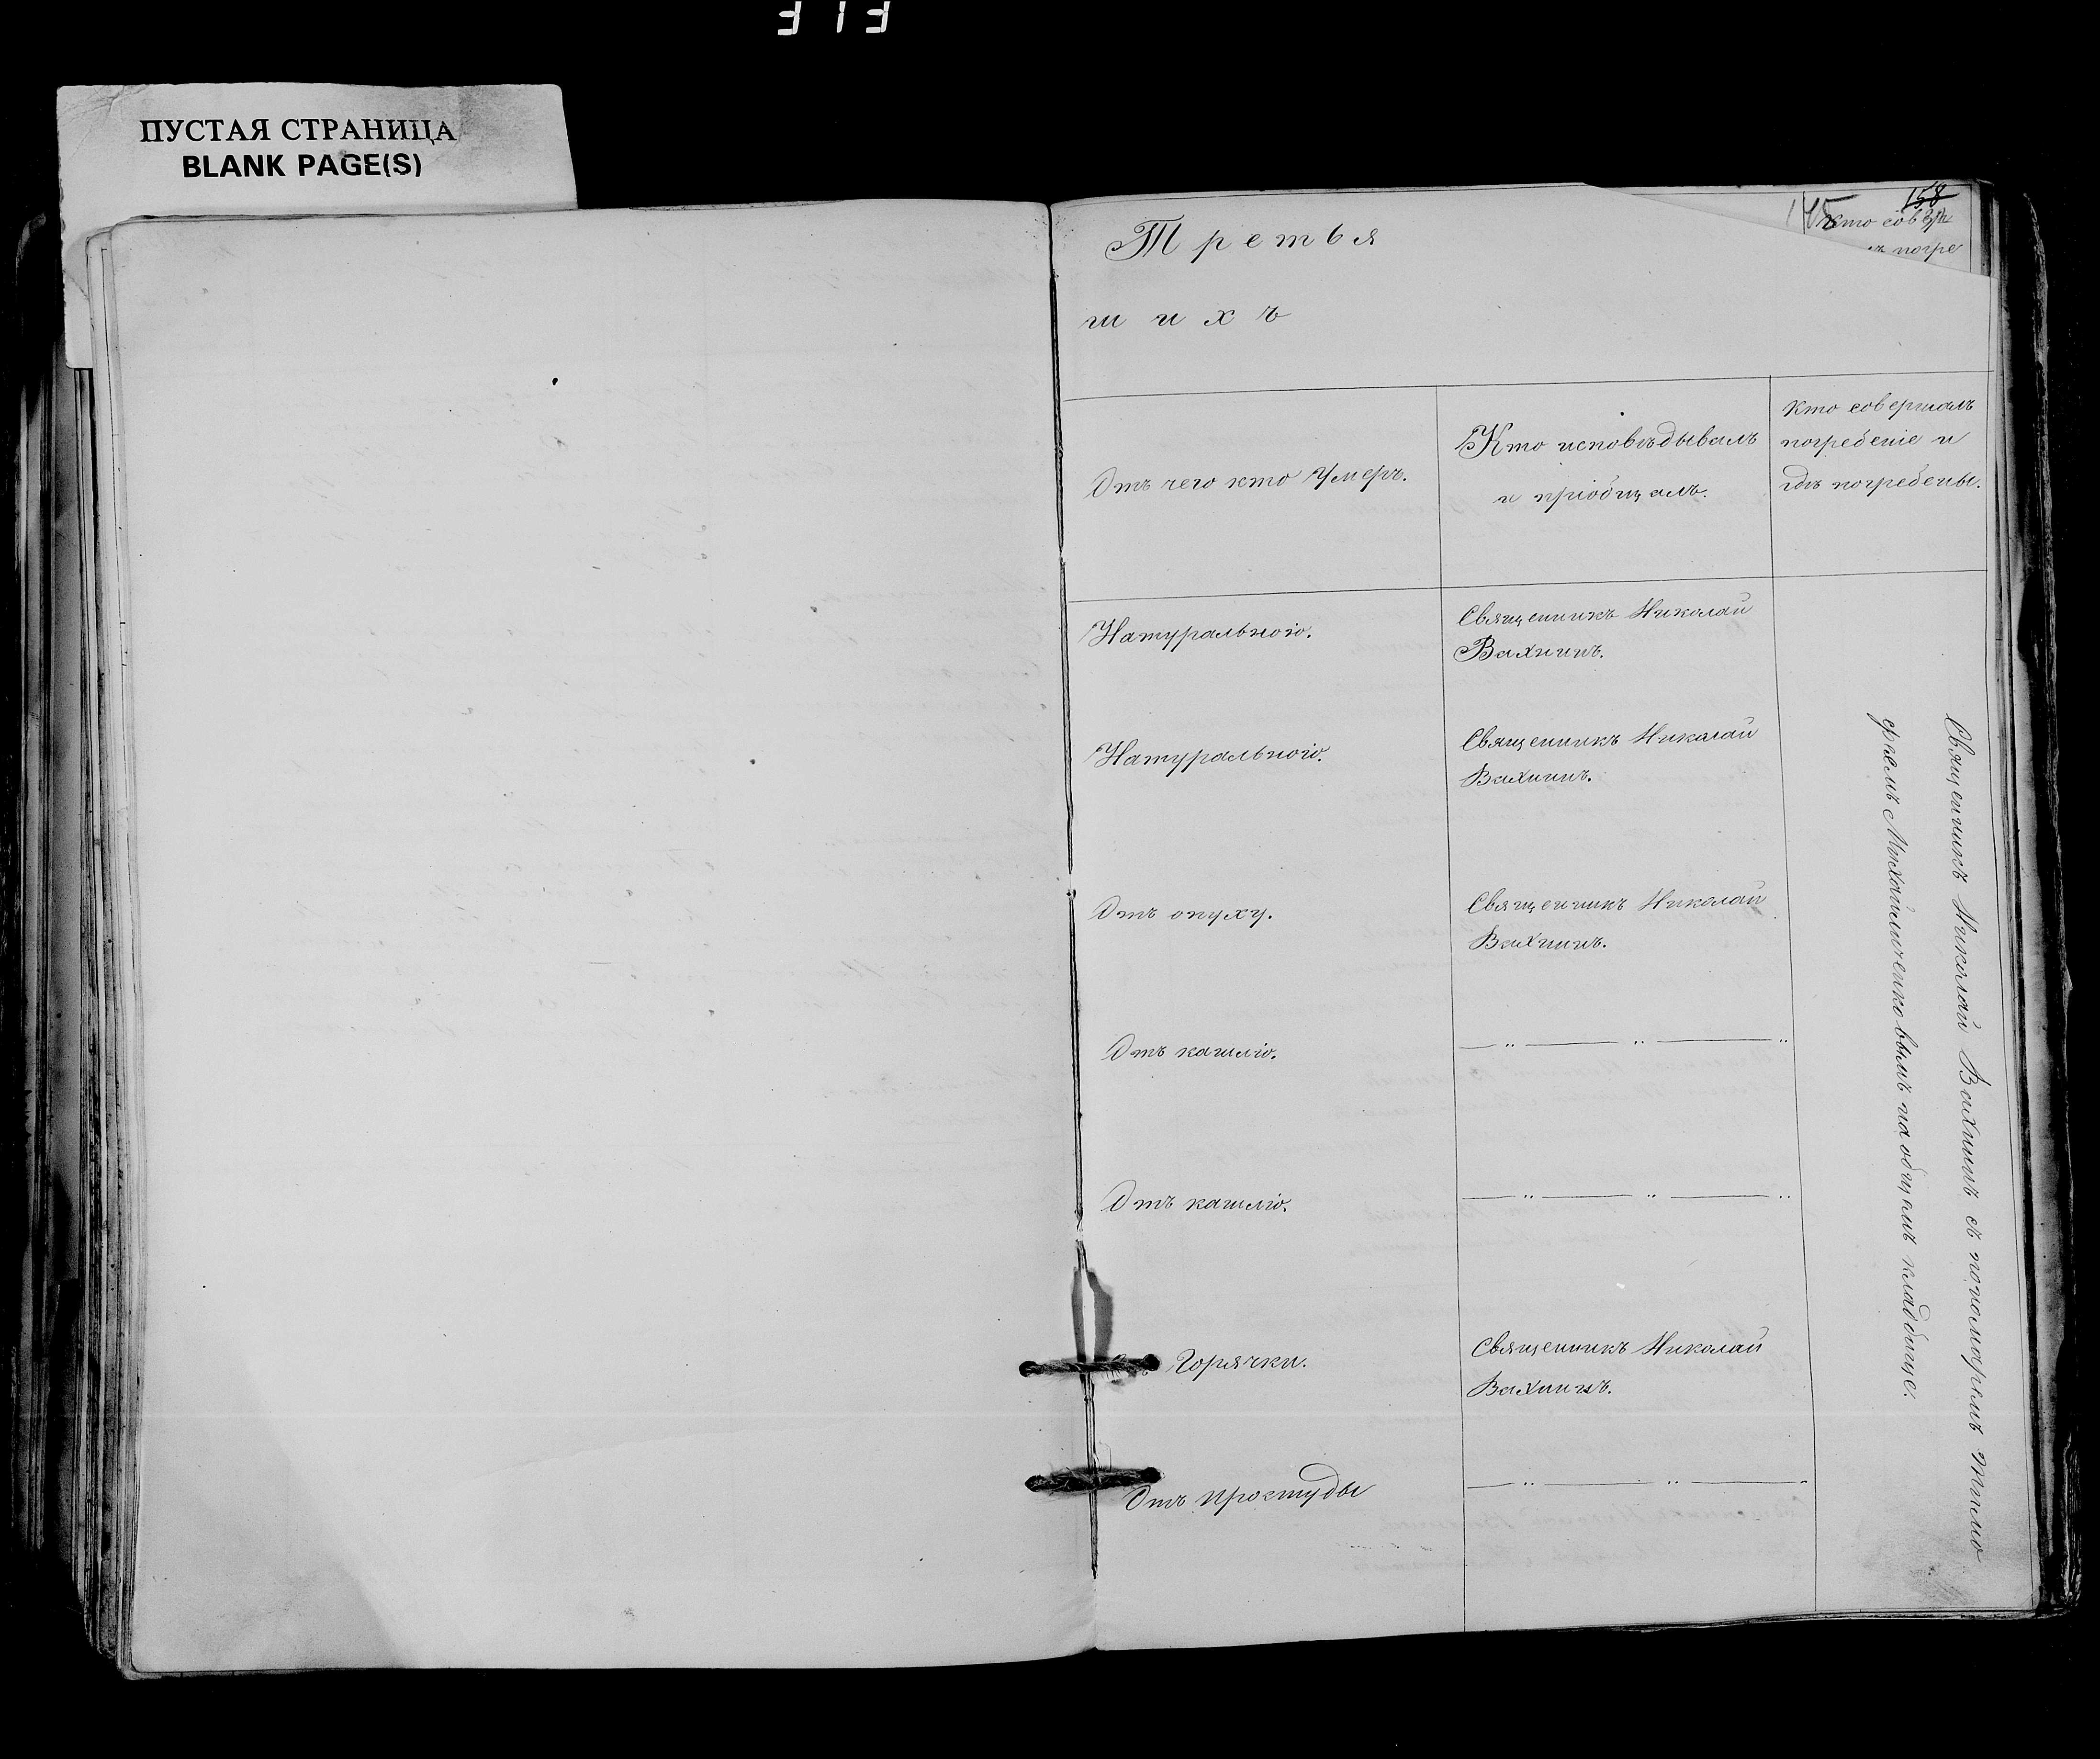 ПУСТАЯ СТРАНИЦА
BLANK PAGE(S)
158
145
Кто сов
погре
Третья
шихъ
Отъ чего кто Умеръ.
Кто исповѣдывалъ
и пріобщалъ.
Кто совершалъ
погребеніе и
гдѣ погребены.
Натуральною.
Священникъ Николай
Вахнинъ.
Натуральною.
Священникъ Николай
Вахнинъ.
Отъ опуху.
Священникъ Николай
Вахнинъ.
Отъ кашлю.
— „ — „ — „
Отъ кашлю.
— „ — „ — „
Горячки.
Священникъ Николай
Вахнинъ.
Отъ простуды
— „ — „ —
Священникъ Николай Вахнинъ съ пономаремъ Тимо
феемъ Михайличенковымъ на общемъ кладбище.